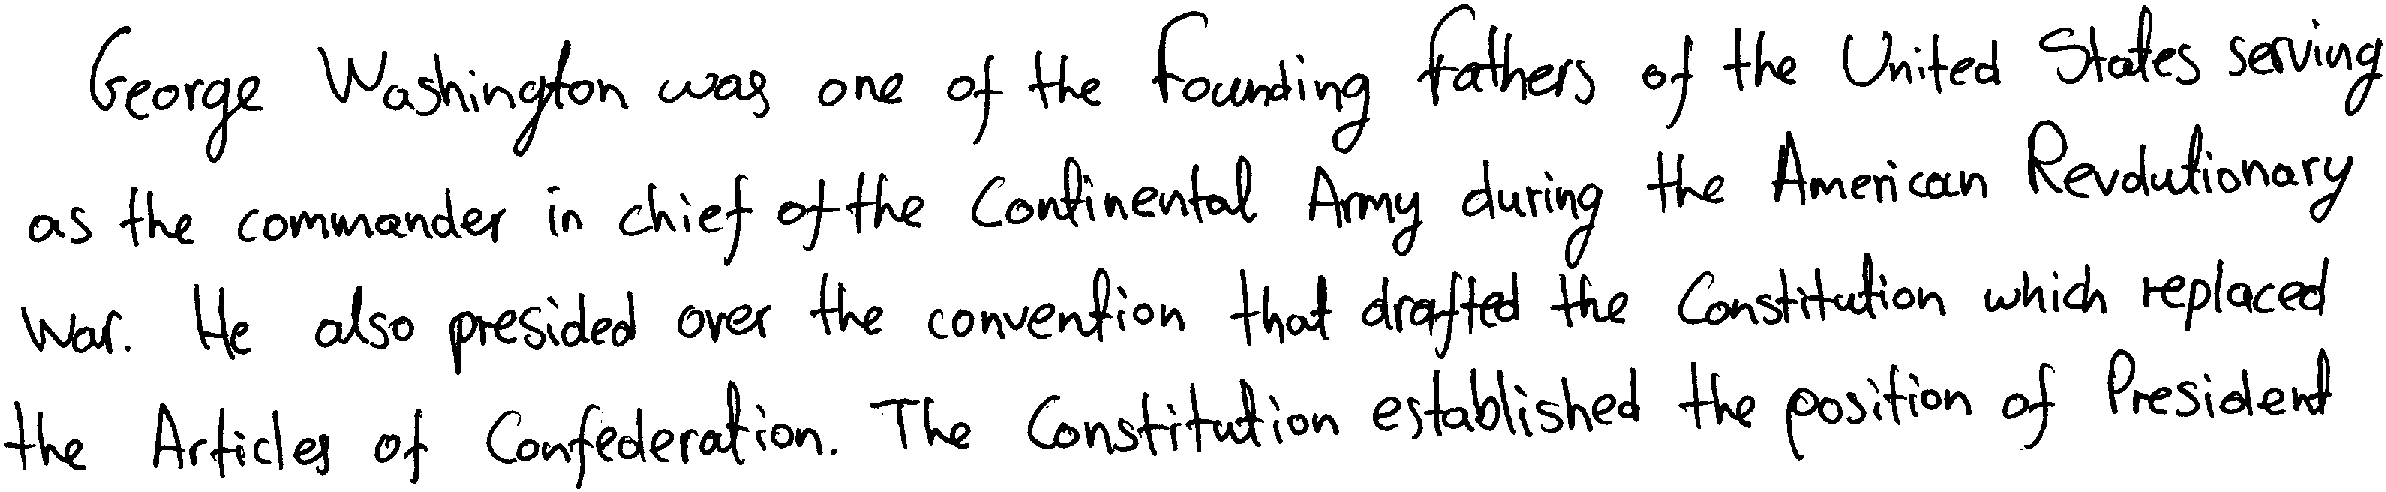 George Washington was one of the Founding Fathers of the United States serving
as the commander in chief of the Continental Army during the American Revolutionary
War. He also presided over the convention that drafted the Constitution which replaced
the Articles of Confederation. The Constitution established the position of President